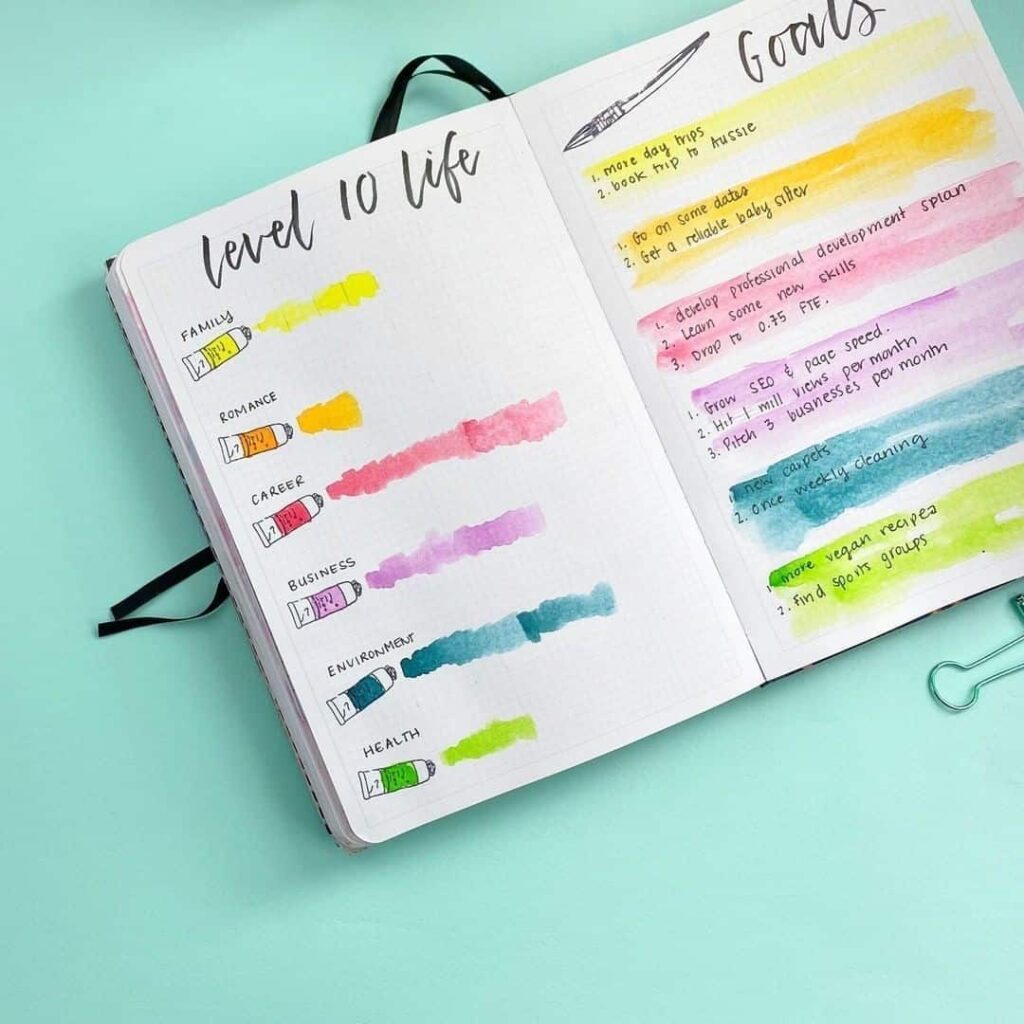 level 10 life
FAMILY
ROMANCE
CAREER
BUSINESS
ENVIRONMENT
HEALTH
Goals
1. more day trips
2. book trip to Aussie
1. Go on some dates
2. Get a reliable baby sitter
1. develop professional development splan
2. Learn some new skills
3. Drop to 0.75 FTE.
1. Grow SEO & page speed.
2. Hit 1 mill views per month
3. Pitch 3 businesses per month
new carpets
2. once weekly cleaning
1. more vegan recipes
2. Find sports groups